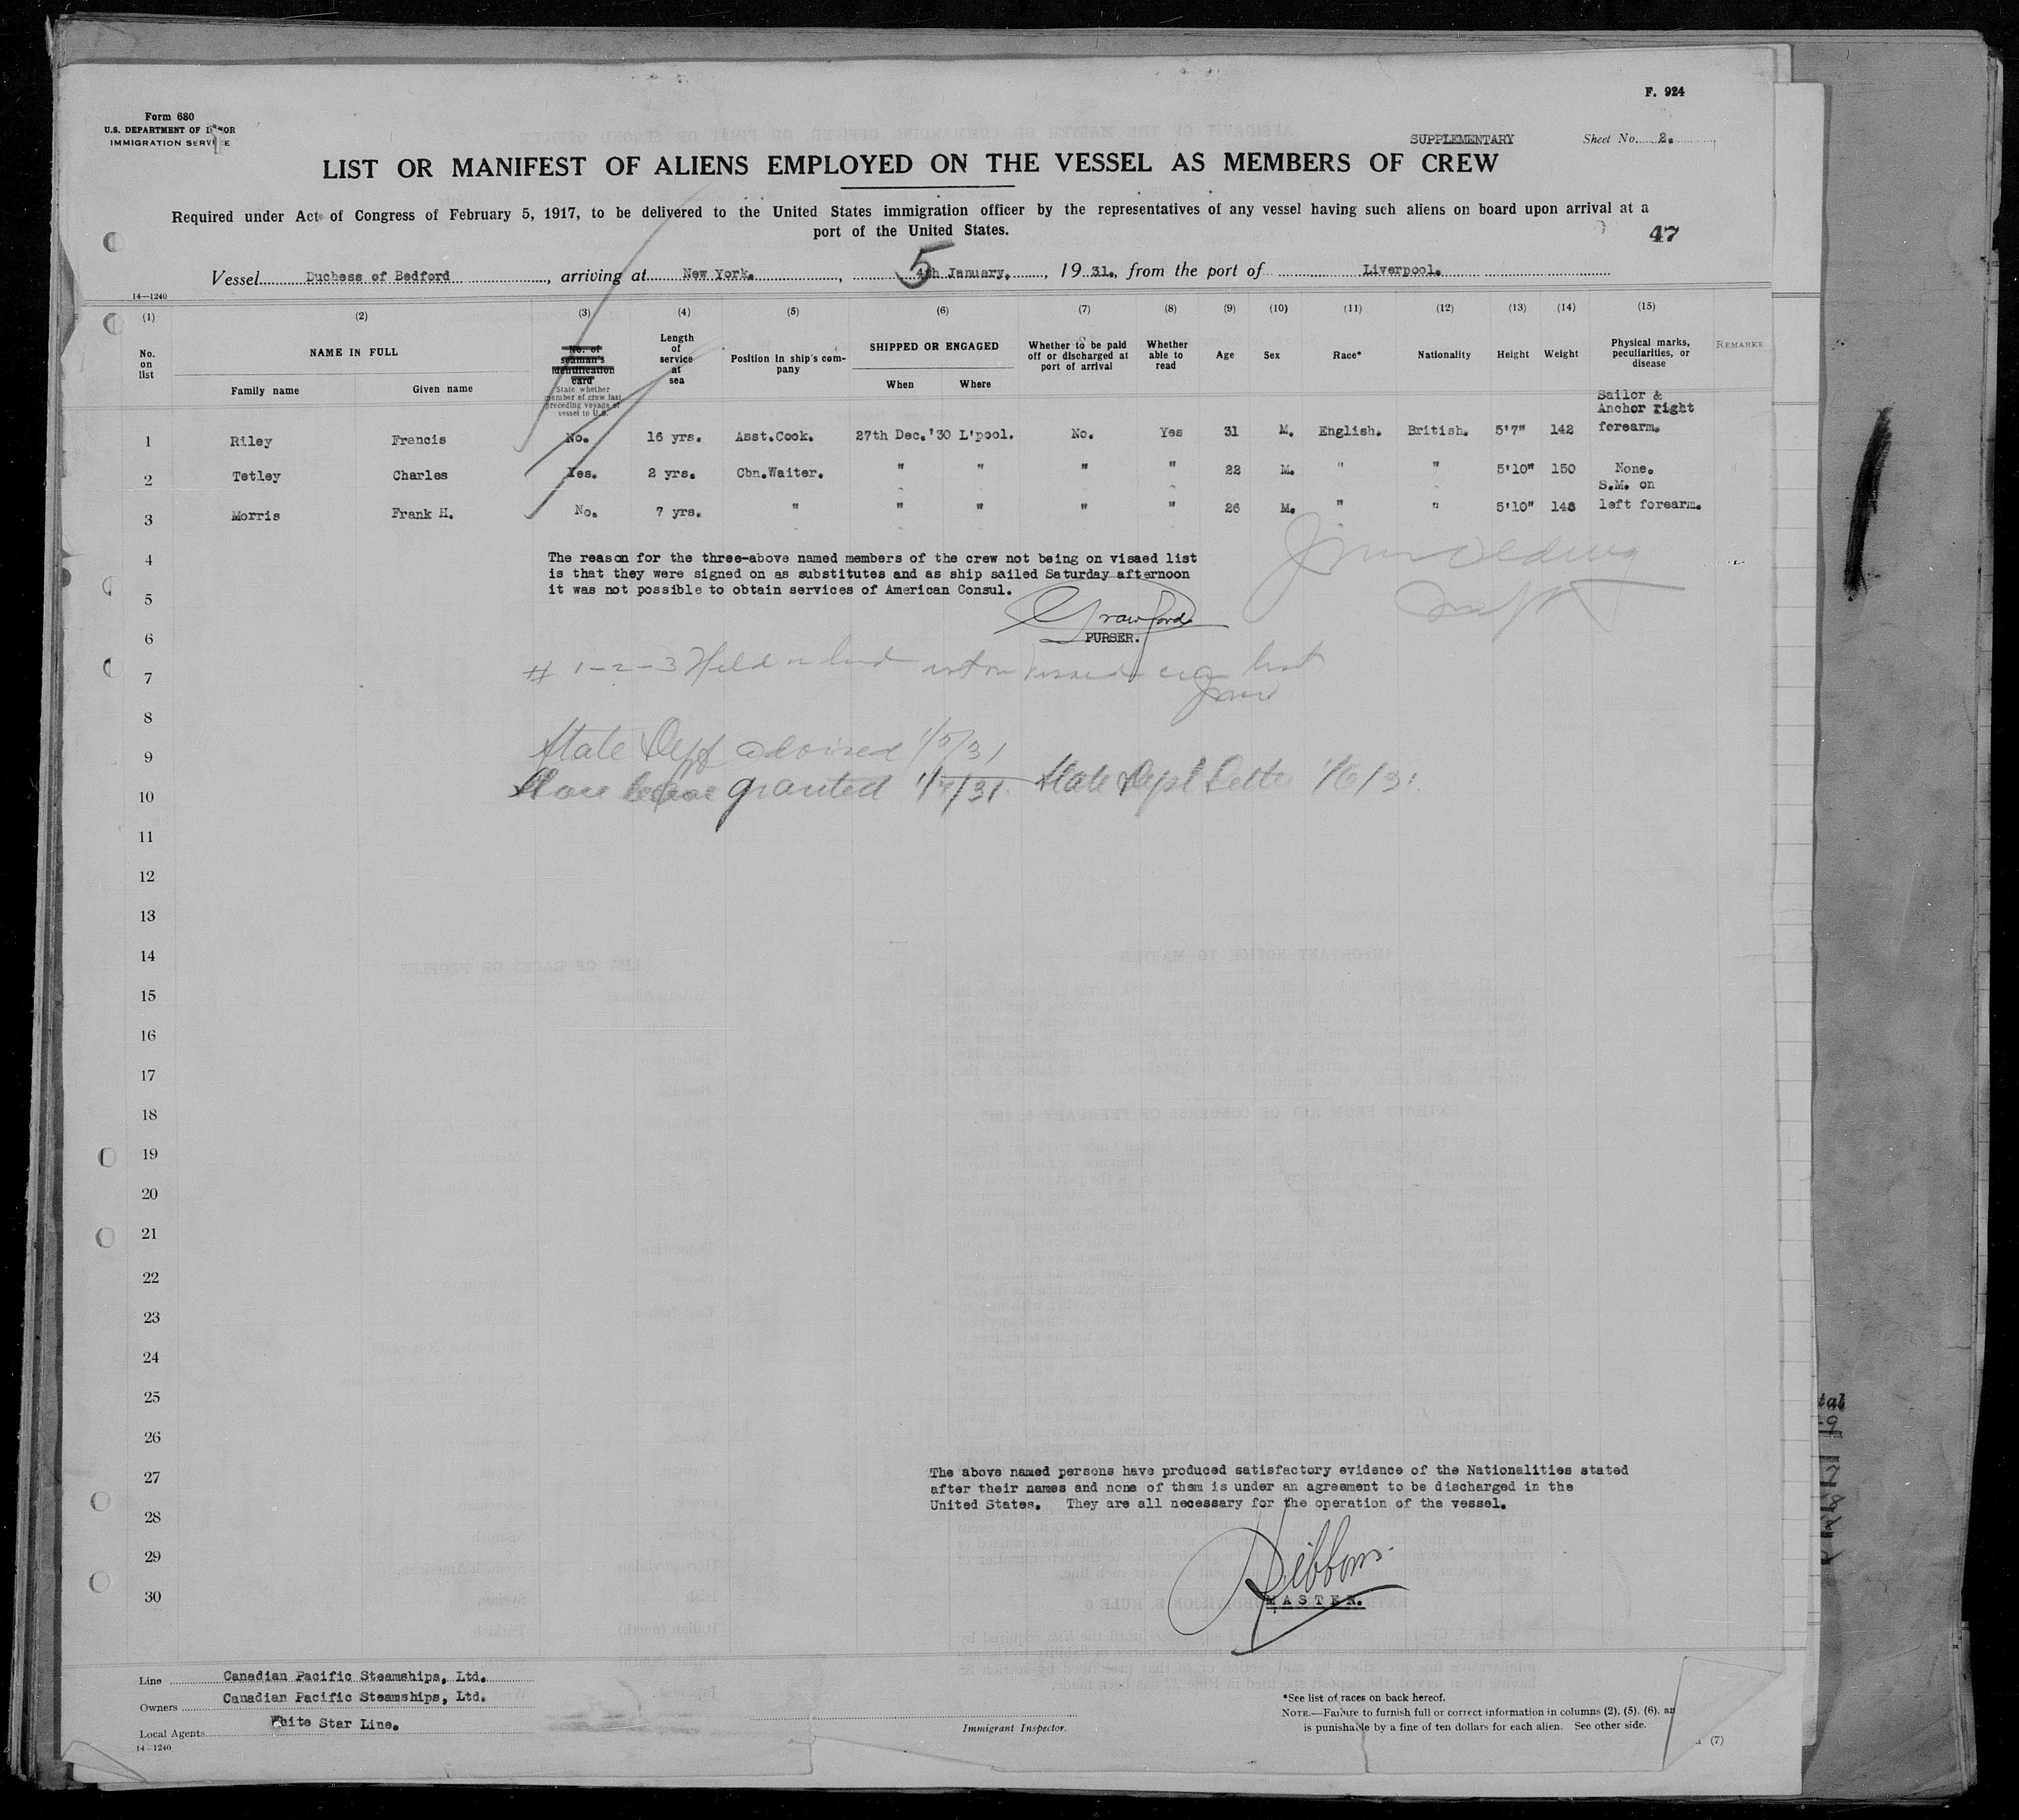 F. 924
Form 680
U.S. DEPARTMENT OF LABOR
IMMIGRATION SERVICE
SUPPLEMENTARY Sheet No. 2.
LIST OR MANIFEST OF ALIENS EMPLOYED ON THE VESSEL AS MEMBERS OF CREW
Required under Act of Congress of February 5, 1917, to be delivered to the United States immigration officer by the representatives of any vessel having such aliens on board upon arrival at a
port of the United States.
47
Vessel Duchess of Bedford, arriving at New York., 5 4th January., 1931., from the port of Liverpool.
14—1240
(1) (2) (3) (4) (5) (6) (7) (8) (9) (10) (11) (12) (13) (14) (15)
No. on list NAME IN FULL Family name Given name No. of seaman's identification card State whether member of crew last preceding voyage of vessel to U.S. Length of service at sea Position in ship's company SHIPPED OR ENGAGED When Where Whether to be paid off or discharged at port of arrival Whether able to read Age Sex Race* Nationality Height Weight Physical marks, peculiarities, or disease REMARKS
Sailor &
Anchor right
1 Riley Francis No. 16 yrs. Asst.Cook. 27th Dec.'30 L'pool. No. Yes 31 M. English. British. 5'7" 142 forearm.
2 Tetley Charles Yes. 2 yrs. Cbn.Waiter. " " " " 22 M. " " 5'10" 150 None.
S.M. on
3 Morris Frank H. No. 7 yrs. " " " " " 26 M. " " 5'10" 148 left forearm.
4
The reason for the three-above named members of the crew not being on visaed list
is that they were signed on as substitutes and as ship sailed Saturday afternoon
it was not possible to obtain services of American Consul.
5
Crawford
6 PURSER.
# 1-2-3 Held on board not on visaed crew list
7
8
State Dept advised 1/5/31
9
granted 1/7/31. State Dept Letter 1/6/31.
10
11
12
13
14
15
16
17
18
19
20
21
22
23
24
25
26
27
The above named persons have produced satisfactory evidence of the Nationalities stated
after their names and none of them is under an agreement to be discharged in the
United States. They are all necessary for the operation of the vessel.
28
29
30
MASTER.
Line Canadian Pacific Steamships, Ltd.
Owners Canadian Pacific Steamships, Ltd.
Local Agents White Star Line.
14—1240
Immigrant Inspector.
*See list of races on back hereof.
NOTE.—Failure to furnish full or correct information in columns (2), (5), (6), an
is punishable by a fine of ten dollars for each alien. See other side.
(7)